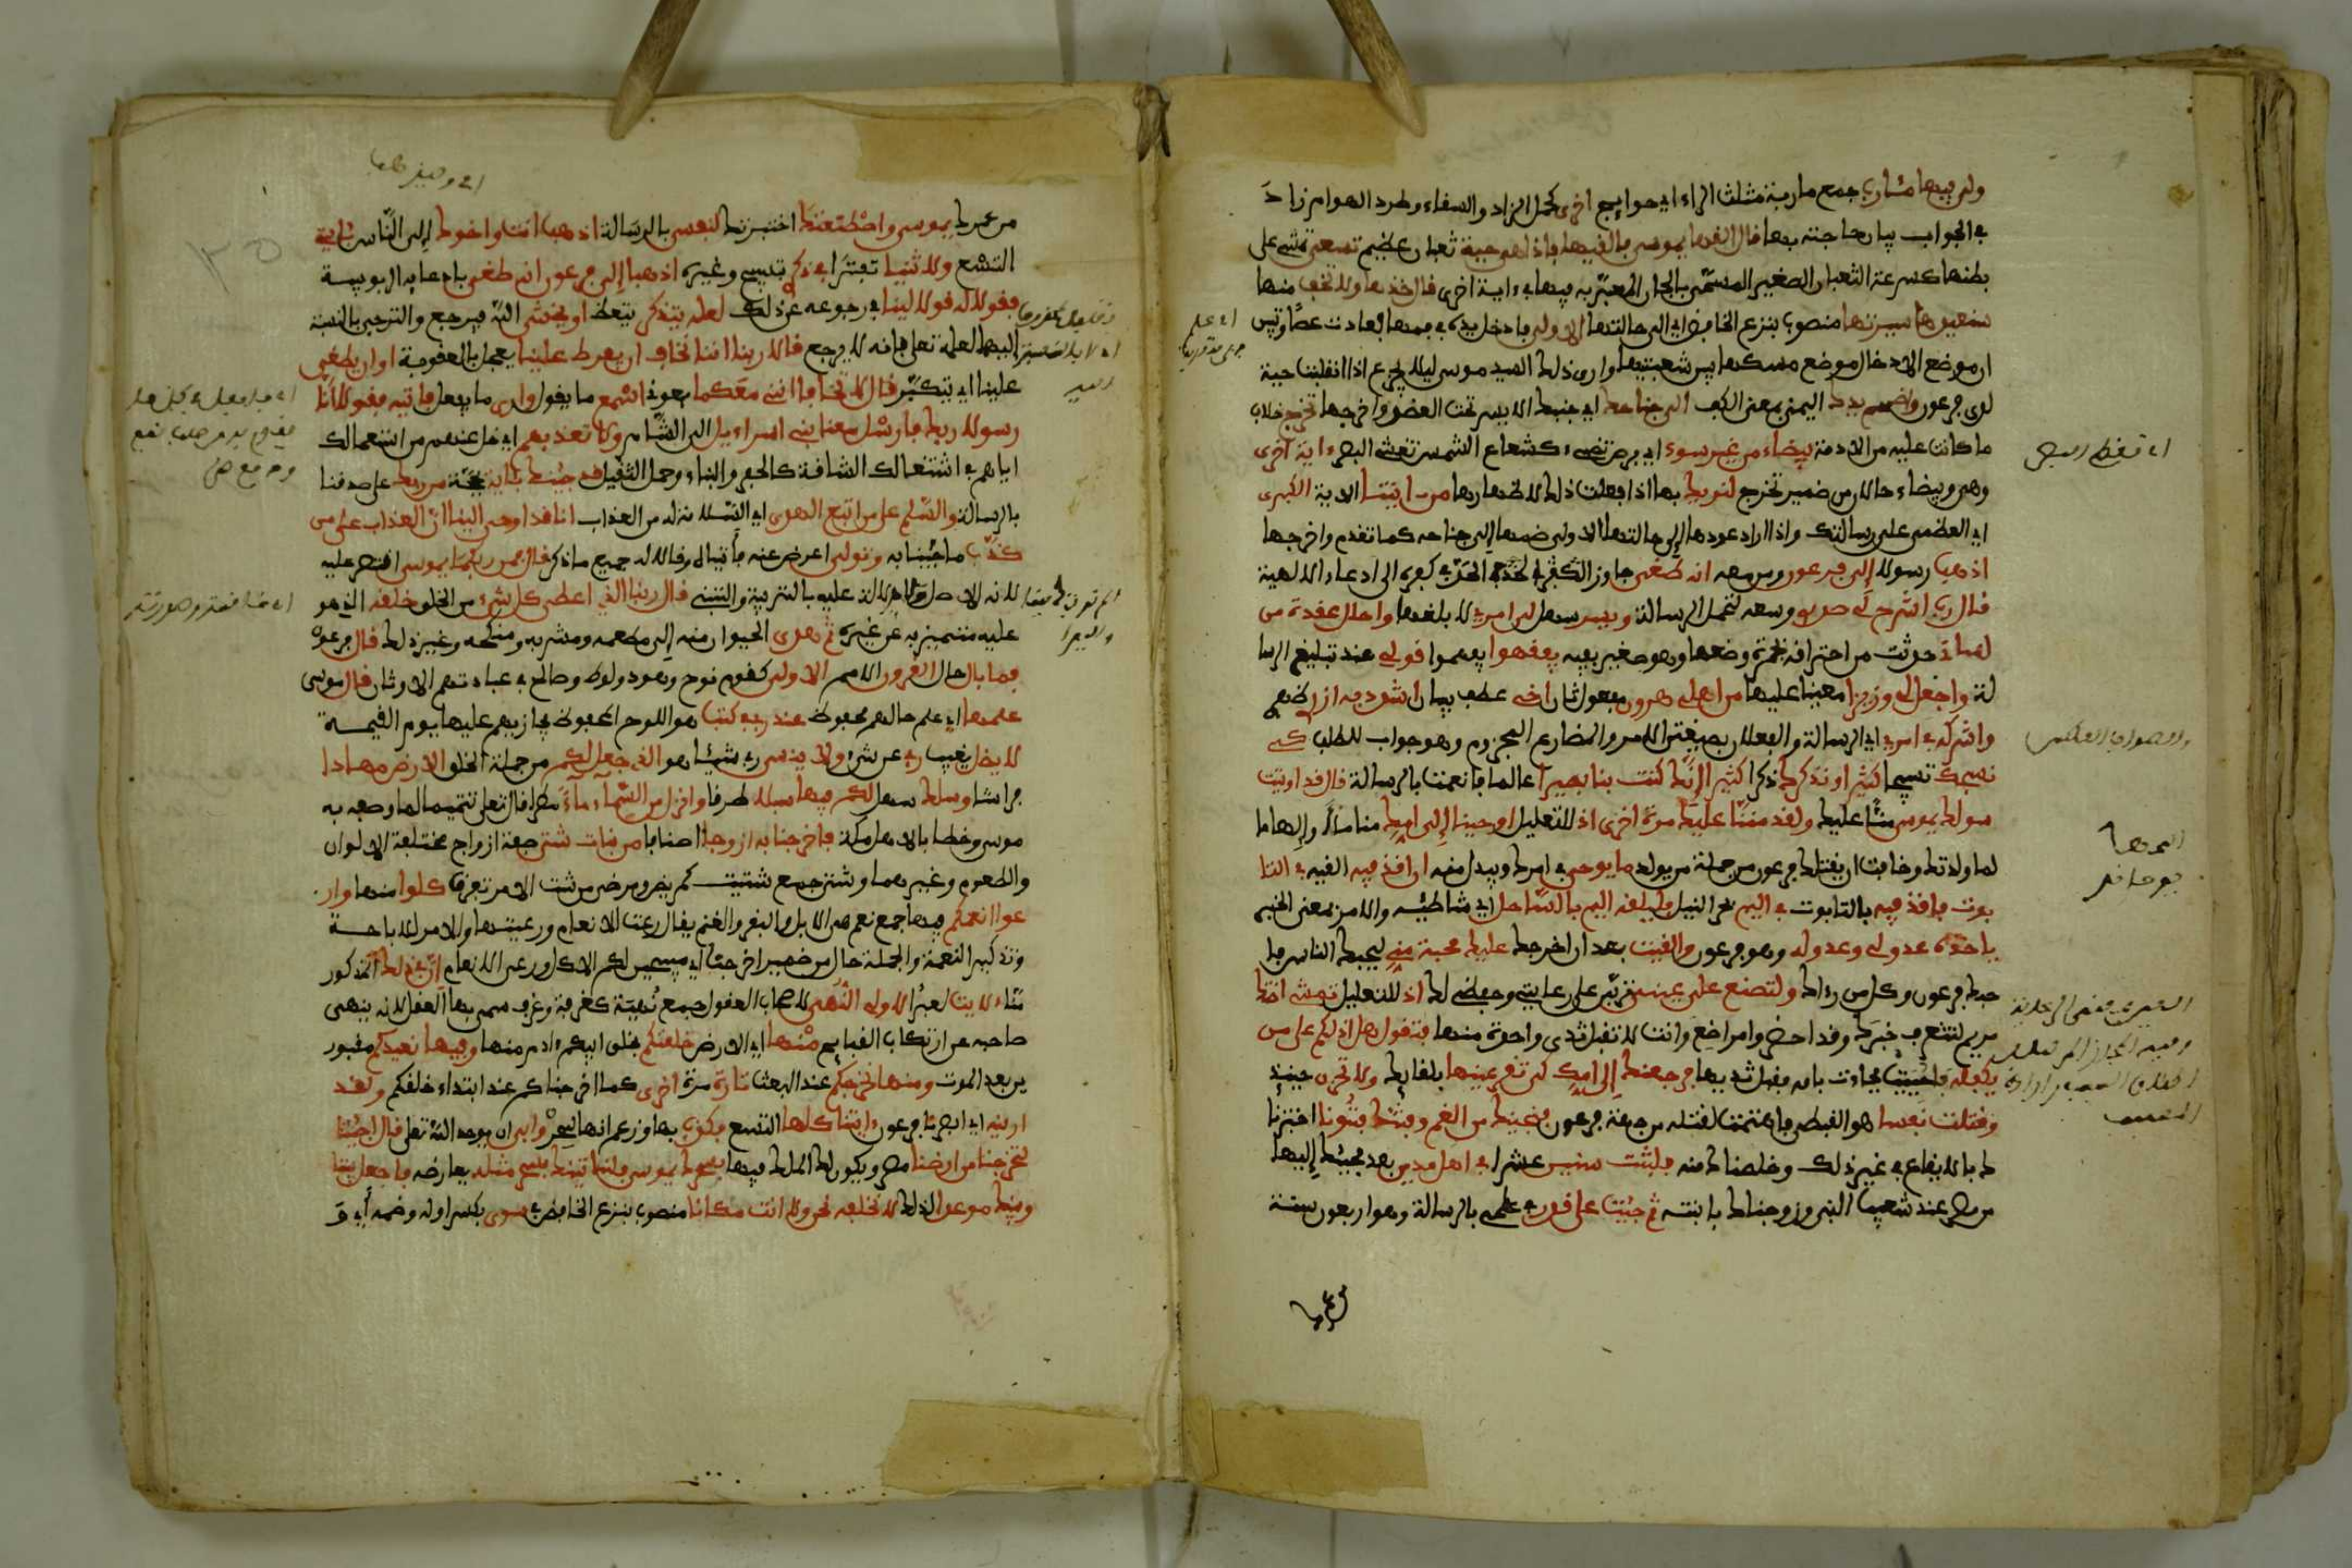 ولي فيها مئارب جمع ماربة مثلث الراء اي حوايج اخرى كحمل الزاد والسفاء وطرد الهوام زاد
في الجواب بيان حاجته بها قال القها يموسى فالقيها فاذا هي حية ثعبان عظيم تسعى تمشي على
بطنها كسرعة الثعبان الصغير المسمى بالجان المعبر به فيها في ءاية اخرى قال خذها ولا تخف منها
سنعيدها سيرتها منصوب بنزع الخافض اي الى حالتها الاولى فادخل يده في فمها فعادت عصا وتبين
ان موضع الادخال موضع مسكها بين شعبتيها واري ذلك السيد موسى ليلا يجزع اذا انقلبت حية
لدى فرعون واضمم يدك اليمنى بمعنى الكف الى جناحك اي جنبك الايسر تحت العضد واخرجها تخرج خلاف
ما كانت عليه من الادمة بيضاء من غير سوء اي برص تضيء كشعاع الشمس تغشى البصر ءاية اخرى
وهي وبيضاء حالان من ضمير تخرج لنريك بها اذا فعلت ذلك لاظهارها من ءايتنا الاية الكبرى
اي العظمى على رسالتك واذا اراد عودها الى حالتها الاولى ضمها الى جناحه كما تقدم واخرجها
اذهب رسولا الى فرعون ومن معه انه طغى جاوز الحد في كفره الى ادعاء الالهية
قال رب اشرح لي صدري وسعه لتحمل الرسالة ويسر سهل لي امري لابلغها واحلل عقدة من
لساني حدثت من احتراقه بجمرة وضعها وهو صغير بفيه يفقهوا يفهموا قولي عند تبليغ الرسا
لة واجعل لي وزيرا معينا عليها من اهلي هرون مفعول ثان اخي عطف بيان اشدد به ازري ظهري
واشركه في امري اي الرسالة والفعلان بصيغتي الامر والمضارع المجزوم وهو جواب للطلب كي
نسبحك تسبيحا كثيرا ونذكرك ذكرا كثيرا انك كنت بنا بصيرا عالما فانعمت بالرسالة قال قد اوتيت
سولك يموسى منا عليك ولقد مننا عليك مرة اخرى اذ للتعليل اوحينا الى امك مناما او الهاما
لما ولدتك وخافت ان يقتلك فرعون من جملة من يولد ما يوحى في امرك ويبدل منه ان اقذفيه القيه في التا
بوت فاقذفيه بالتابوت في اليم بحر النيل فليلقه اليم بالساحل اي شاطئه والامر بمعنى الخبر
ياخذه عدو لي وعدو له وهو فرعون والقيت بعد ان اخرجك عليك محبة مني ليحبك الناس فا
حبك فرعون وكل من رءاك ولتصنع على عيني تربى على رعايتي وحفظي لك اذ للتعليل تمشي اختك
مريم لتتعرف خبرك وقد احضروا مراضع وانت لا تقبل ثدي واحدة منها فتقول هل ادلكم على من
يكفله فاجيبت فجاءت بامه فقبل ثديها فرجعنك الى امك كي تقر عينها بلقايك ولا تحزن حينئذ
وقتلت نفسا هو القبطي فاغتممت لقتله من جهة فرعون فنجينك من الغم وفتنك فتونا اختبرنا
ك بالايقاع في غير ذلك وخلصناك منه فلبثت سنين عشرا في اهل مدين بعد مجيئك اليها
من مصر عند شعيب النبي وزوجناك بابنته ثم جئت على قدر في علمي بالرسالة وهو اربعون سنة
من عمرك يموسى واصطنعتك اخترتك لنفسي بالرسالة اذهب انت واخوك الى الناس بئايتي
التسع ولا تنيا تفترا في ذكري بتسبيح وغيره اذهبا الى فرعون انه طغى بادعايه الربوبية
فقولا له قولا لينا في رجوعه عن ذلك لعله يتذكر يتعظ او يخشى الله فيرجع والترجي بالنسبة
اليهما لعلمه تعلى بانه لا يرجع قالا ربنا اننا نخاف ان يفرط علينا يعجل بالعقوبة او ان يطغى
علينا اي يتكبر قال لا تخافا انني معكما بعوني اسمع ما يقول وارى ما يفعل فاتيه فقولا انا
رسولا ربك فارسل معنا بني اسراءيل الى الشام ولا تعذبهم اي خل عنهم من استعمالك
اياهم في اشغالك الشاقة كالحفر والبناء وحمل الثقيل قد جئنك بئاية بحجة من ربك على صدقنا
بالرسالة والسلم على من اتبع الهدى اي السلامة له من العذاب انا قد اوحي الينا ان العذاب على من
كذب ما جئنا به وتولى اعرض عنه فاتياه وقالا له جميع ما ذكر قال فمن ربكما يموسى اقتصر عليه
لانه الاصل ولادلاله عليه بالتربية والتبني قال ربنا الذي اعطى كل شيء من الخلق خلقه الذي هو
عليه متميز به عن غيره ثم هدى الحيوان منه الى مطعمه ومشربه ومنكحه وغير ذلك قال فرعون
فما بال حال القرون الامم الاولى كقوم نوح وهود ولوط وصالح في عبادتهم الاوثان قال موسى
علمها اي علم حالهم محفوظ عند ربي في كتب هو اللوح المحفوظ يجازيهم عليها يوم القيمة
لا يضل يغيب ربي عن شيء ولا ينسى ربي شيئا هو الذي جعل لكم من جملة الخلق الارض مهادا
فراشا وسلك سهل لكم فيها سبلا طرقا وانزل من السماء ماء مطرا قال تعلى تتميما لما وصفه به
موسى وخطابا لاهل مكة فاخرجنا به ازوجا اصنافا من نبات شتى صفة ازواج مختلفة الالوان
والطعوم وغيرهما وشتى جمع شتيت كمريض ومرضى من شت الامر تفرق كلوا منها وار
عوا انعمكم فيها جمع نعم هي الابل والبقر والغنم يقال رعت الانعام ورعيتها والامر للاباحة
وتذكير النعمة والجملة حال من ضمير اخرجنا اي مبيحين لكم الاكل ورعي الانعام ان في ذلك المذكور
هنا لايت لعبرا لاولي النهى لاصحاب العقول جمع نهية كغرفة وغرف سمي بها العقل لانه ينهى
صاحبه عن ارتكاب القبايح منها اي الارض خلقنكم بخلق ابيكم ءادم منها وفيها نعيدكم مقبور
ين بعد الموت ومنها نخرجكم عند البعث تارة مرة اخرى كما اخرجناكم عند ابتداء خلقكم ولقد
ارينه اي ابصرنا فرعون ءايتنا كلها التسع فكذب بها وزعم انها سحر وابى ان يوحد الله تعلى قال اجئتنا
لتخرجنا من ارضنا مصر ويكون لك الملك فيها بسحرك يموسى فلناتينك بسحر مثله يعارضه فاجعل بيننا
وبينك موعدا لذلك لا نخلفه نحن ولا انت مكانا منصوب بنزع الخافض في سوى بكسر اوله وضمه اي و